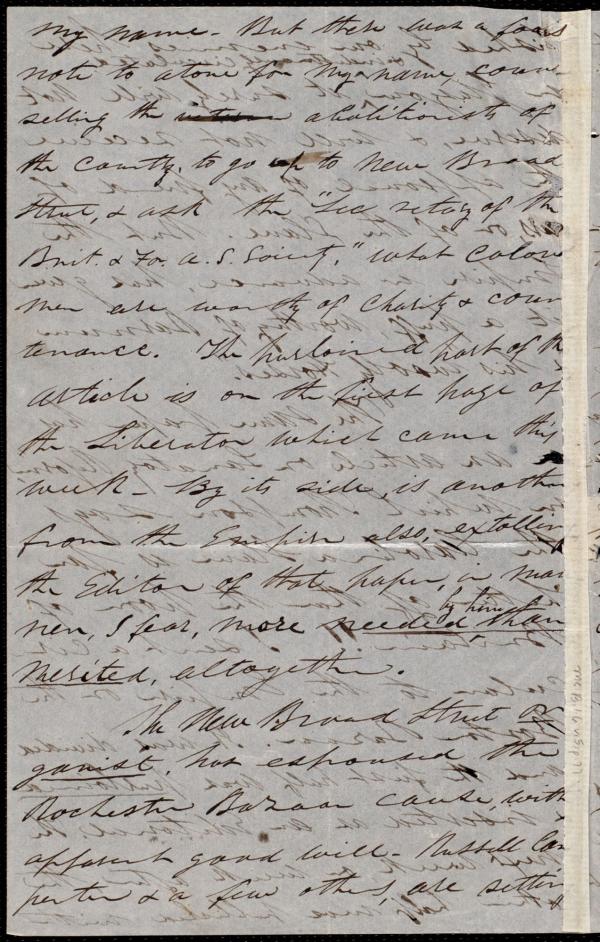 my name - But there was a fools
note to atone for my name, coun-
selling the abolitionists of
the county, to go up to New Broad
Street, & ask the "Secretary of the
Brit. & Fo. A. S. Society," what Color
men are worthy of charity & coun
tenance. The purloined part of the
article is on the first page of
the Liberator which came this
week - By its side, is another
from the Empire also, extollin
the Editor of that paper, in man
ner, I fear, more needed than
by himself
merited, altogether.
The New Broad Street or
ganist, has espoused the
Rochester Bazaar cause, with
apparent good will - Russell Car
penter & a few others, are settin